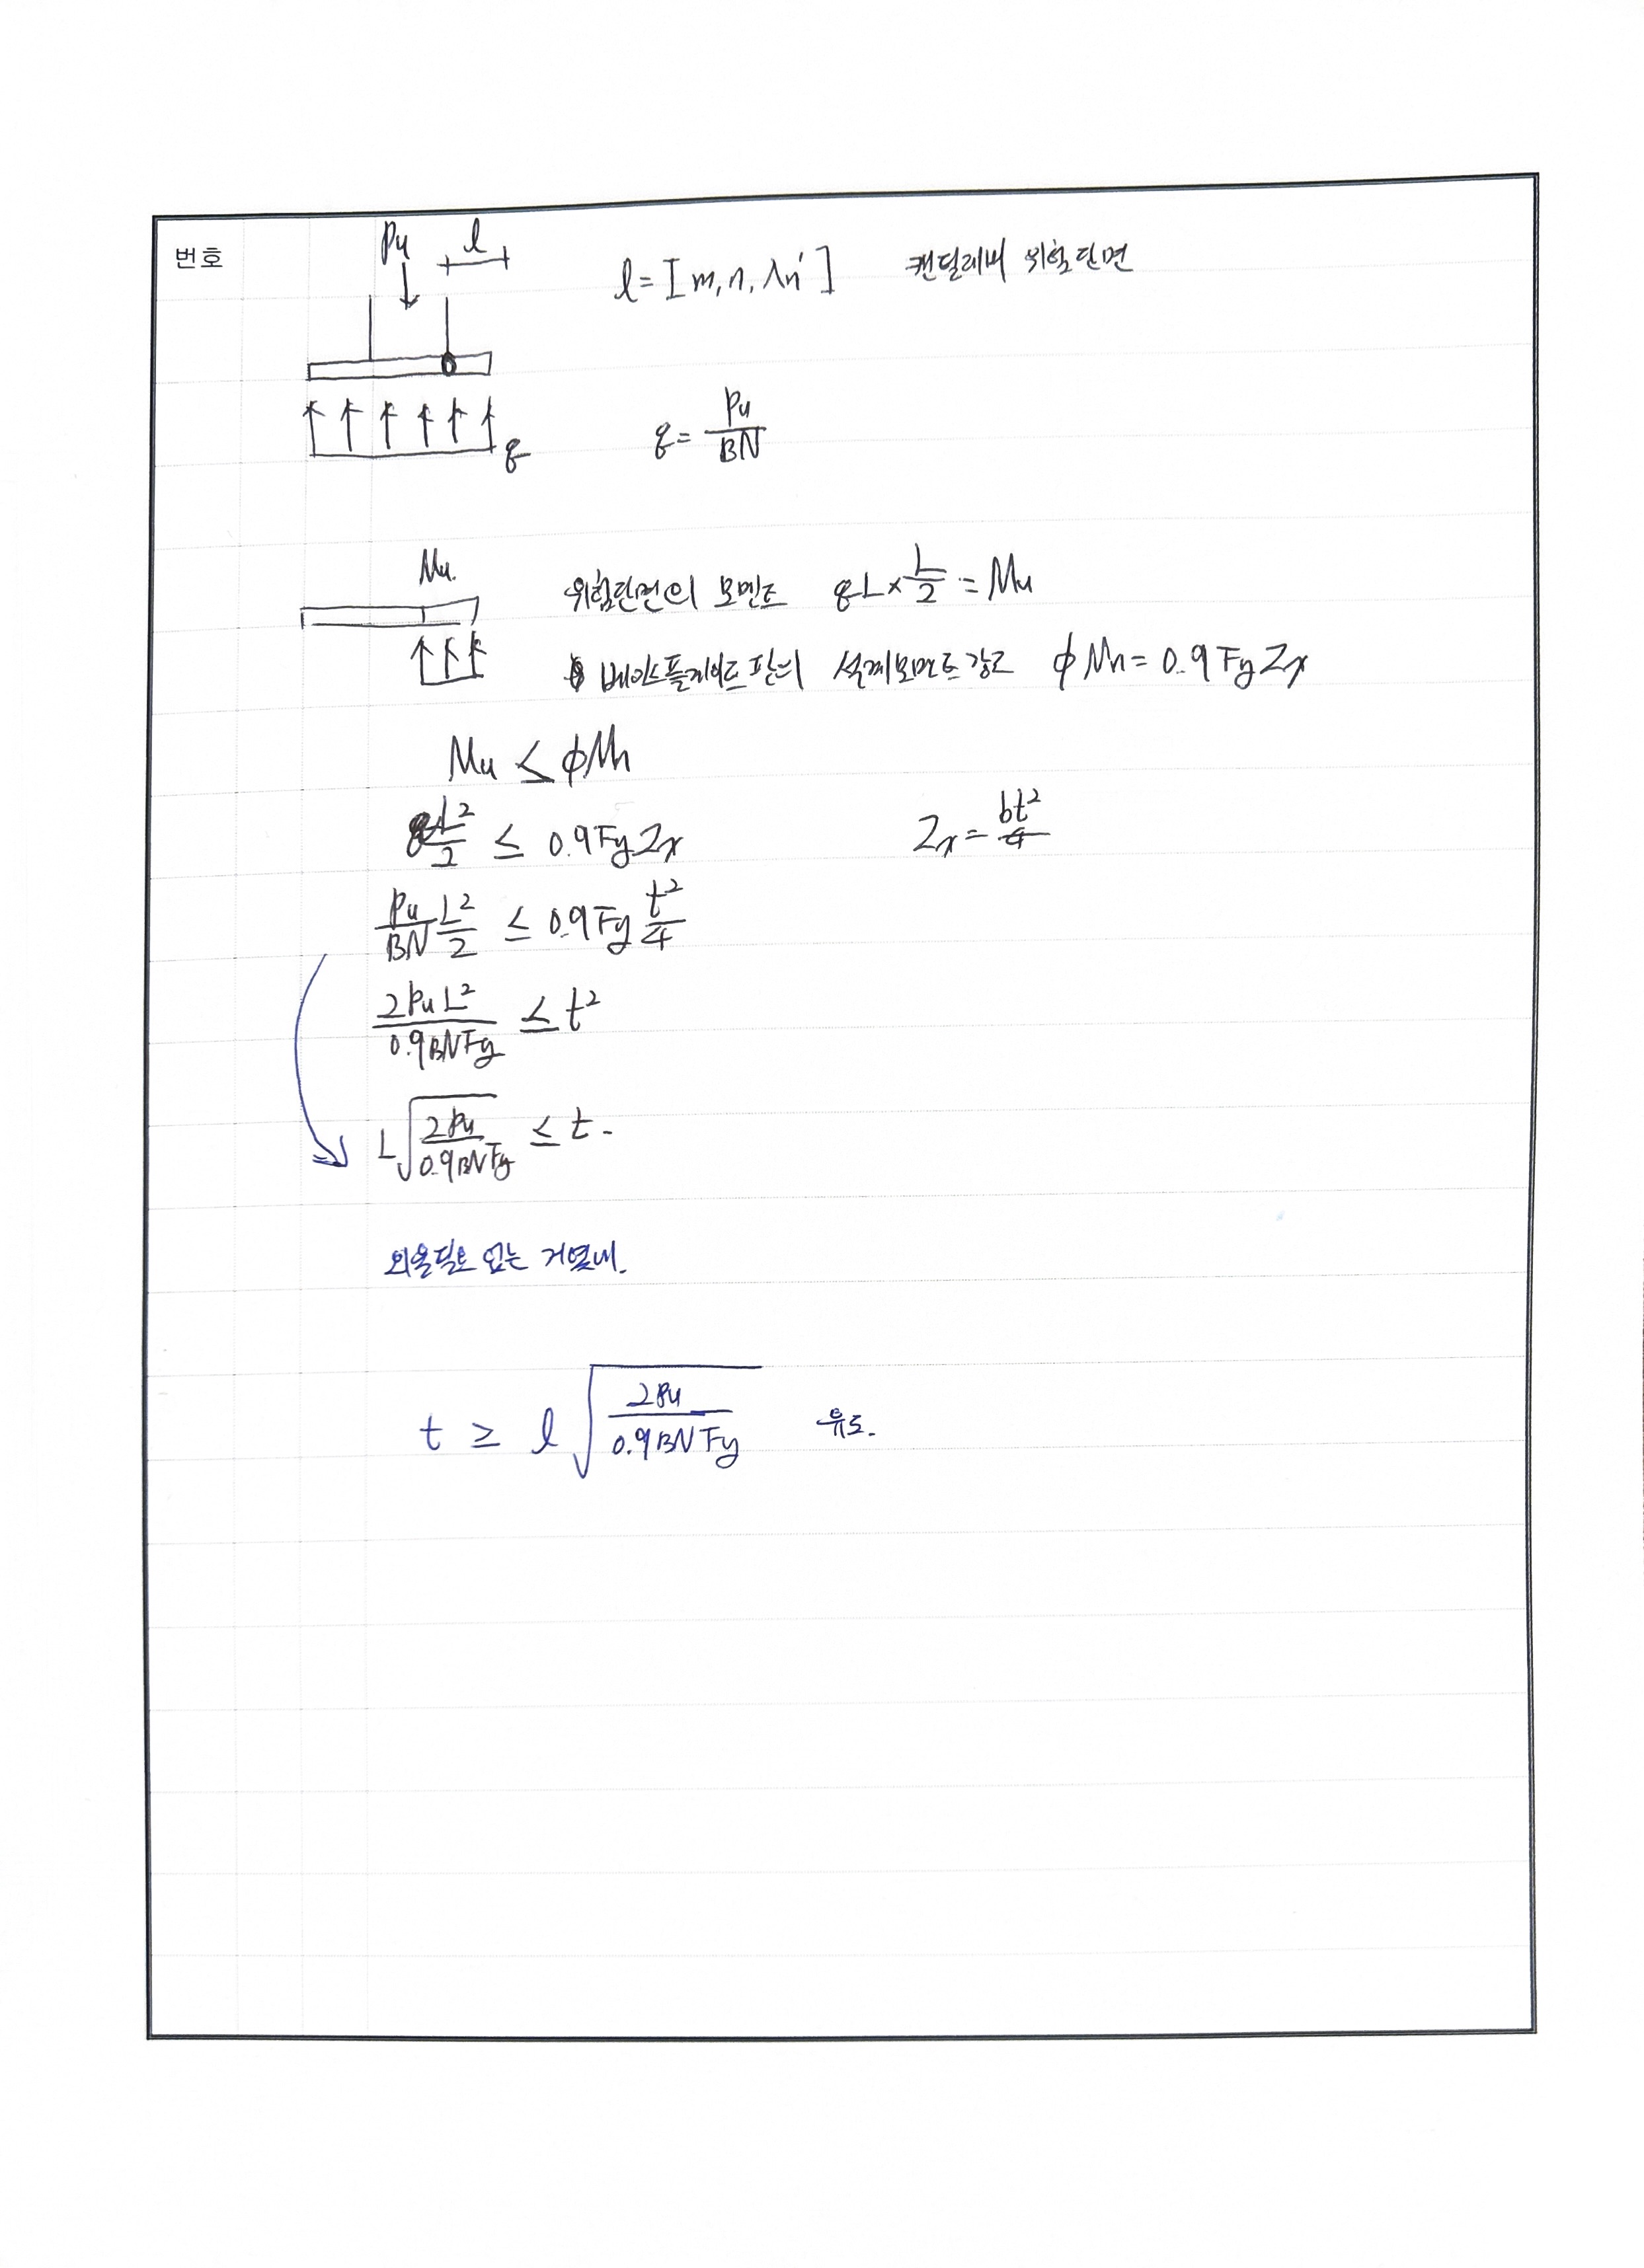 번호
Pu l
l = [m, n, λn'] 캔딜레버 위험단면
q
q = Pu/BN
Mu.
위험단면의 모멘트 qL × L/2 = Mu
베이스플레이트 판의 설계모멘트강도 φMn = 0.9 Fy Zx
Mu ≤ φMn
qL²/2 ≤ 0.9 Fy Zx
Zx = bt²/4
Pu/BN L²/2 ≤ 0.9 Fy t²/4
2PuL²/0.9BNFy ≤ t²
L√(2Pu/0.9BNFy) ≤ t.
외울필요 없는 거였네.
t ≥ l√(2Pu/0.9BNFy) 유도.